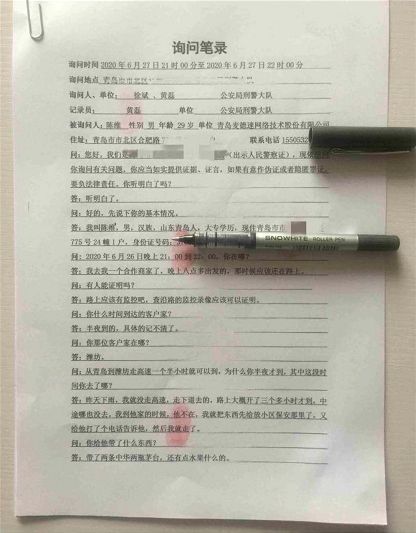 询问笔录
询问时间 2020 年 6 月 27 日 21 时 00 分至 2020 年 6 月 27 日 22 时 00 分
询问地点 青岛市市北区
询问人、单位: 徐斌 、黄磊 公安局刑警大队
记录员: 黄磊 单位 公安局刑警大队
被询问人: 陈维 性别 男 年龄 29 岁 单位 青岛麦德速网络技术股份有限公司
住址: 青岛市市北区合肥路 联系电话 1550532
问: 您好, 我们是 (出示人民警察证), 现依
你询问有关问题, 你应当如实提供证据、证言, 如果有意作伪证或者隐匿罪证,
要负法律责任。你听明白了吗?
答: 听明白了。
问: 好的。先说下你的基本情况。
答: 我叫陈维, 男, 汉族, 山东青岛人, 大专学历, 现住青岛市市
775 号 24 幢 1 户, 身份证号码:
问: 2020 年 6 月 26 日晚上 21: 00 到 22: 00, 你在哪?
答: 我去我一个合作商家了, 晚上八点多出发的, 那时候应该还在路上。
问: 有人能证明吗?
答: 路上应该有监控吧, 查沿路的监控录像应该可以证明。
问: 你什么时间到达的客户家?
答: 半夜到的, 具体的记不清了。
问: 你那位客户家在哪?
答: 潍坊。
问: 从青岛到潍坊走高速一个半小时就可以到, 为什么你半夜才到, 其中这段时
间你去了哪?
答: 昨天下雨, 我就没走高速, 走下道去的, 路上大概开了三个多小时才到, 中
途哪也没去, 我到他家的时候, 他不在, 我就把东西先给放小区保安那里了, 又
给他打了个电话告诉他, 然后我就走了。
问: 你给他带了什么东西?
答: 带了两条中华两瓶茅台, 还有点水果什么的。
SNOWHITE ROLLER PEN